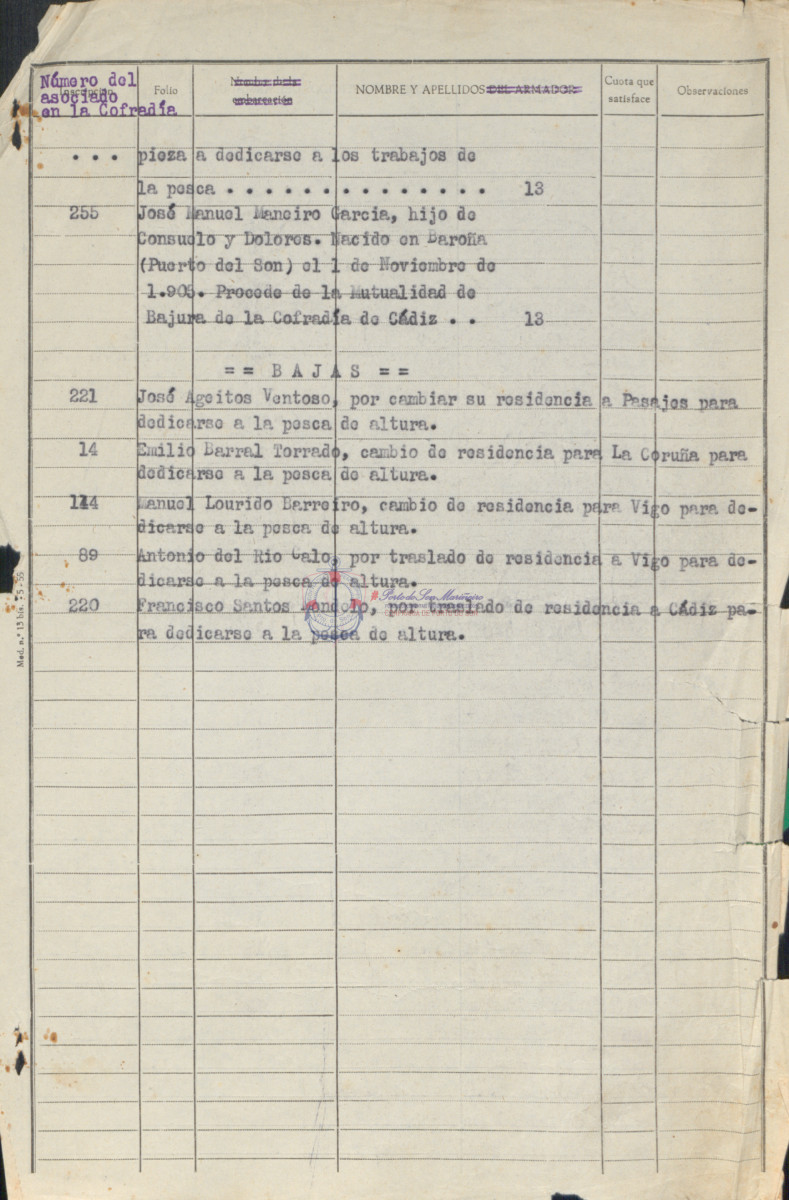 Número del
asociado
en la Cofradía
Inscripción
Folio
Nombre de la
embarcación
NOMBRE Y APELLIDOS DEL ARMADOR
Cuota que
satisface
Observaciones
... pieza a dedicarse a los trabajos de
la pesca . . . . . . . . . . . . . . 13
255 José Manuel Maneiro Garcia, hijo de
Consuelo y Dolores. Nacido en Baroña
(Puerto del Son) el 1 de Noviembre de
1.905. Procede de la Mutualidad de
Bajura de la Cofradía de Cádiz . . 13
== B A J A S ==
221 José Ageitos Ventoso, por cambiar su residencia a Pasajes para
dedicarse a la pesca de altura.
14 Emilio Barral Torrado, cambio de residencia para La Coruña para
dedicarse a la pesca de altura.
144 Manuel Lourido Barreiro, cambio de residencia para Vigo para de-
dicarse a la pesca de altura.
89 Antonio del Rio Calo, por traslado de residencia a Vigo para de-
dicarse a la pesca de altura.
220 Francisco Santos, por traslado de residencia a Cádiz pa-
ra dedicarse a la pesca de altura.
Porto do Son Mariñeiro
Mod. n.º 13 bis. - 5 - 55